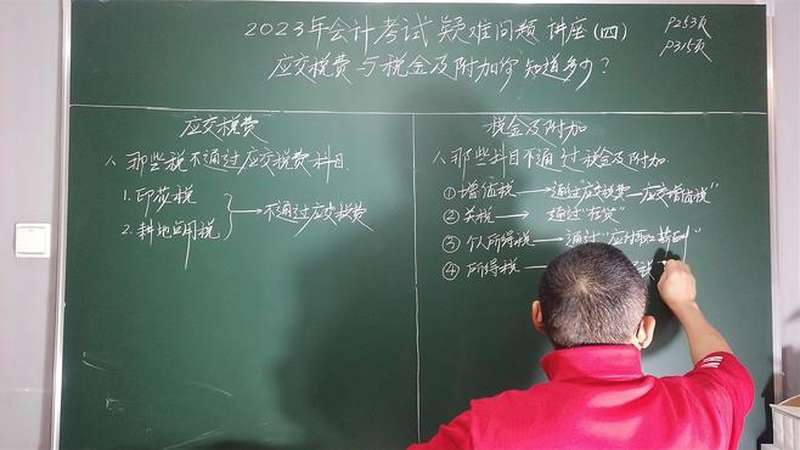 2023年会计考试疑难问题讲座(四)
P253页
P315页
应交税费与税金及附加你知道多少?
应交税费
一、那些税不通过应交税费科目
1.印花税
2.耕地占用税
不通过应交税费
税金及附加
一、那些科目不通过税金及附加
①增值税→通过"应交税费一应交增值税"
②关税→通过"在货"
③个人所得税→通过"应付职工薪酬"
④所得税
税"